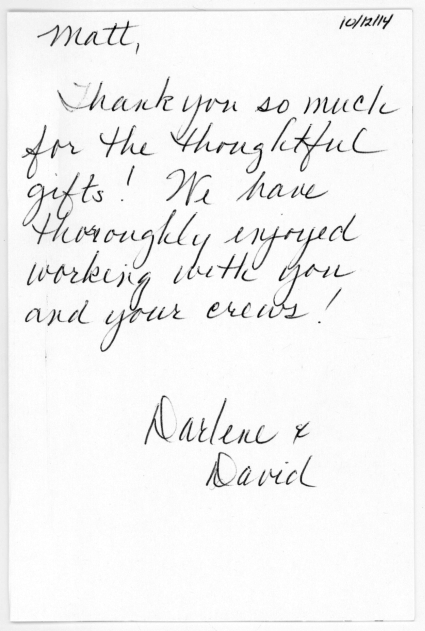 10/12/14
Matt,
Thank you so much
for the thoughtful
gifts! We have
thoroughly enjoyed
working with you
and your crews!
Darlene &
David